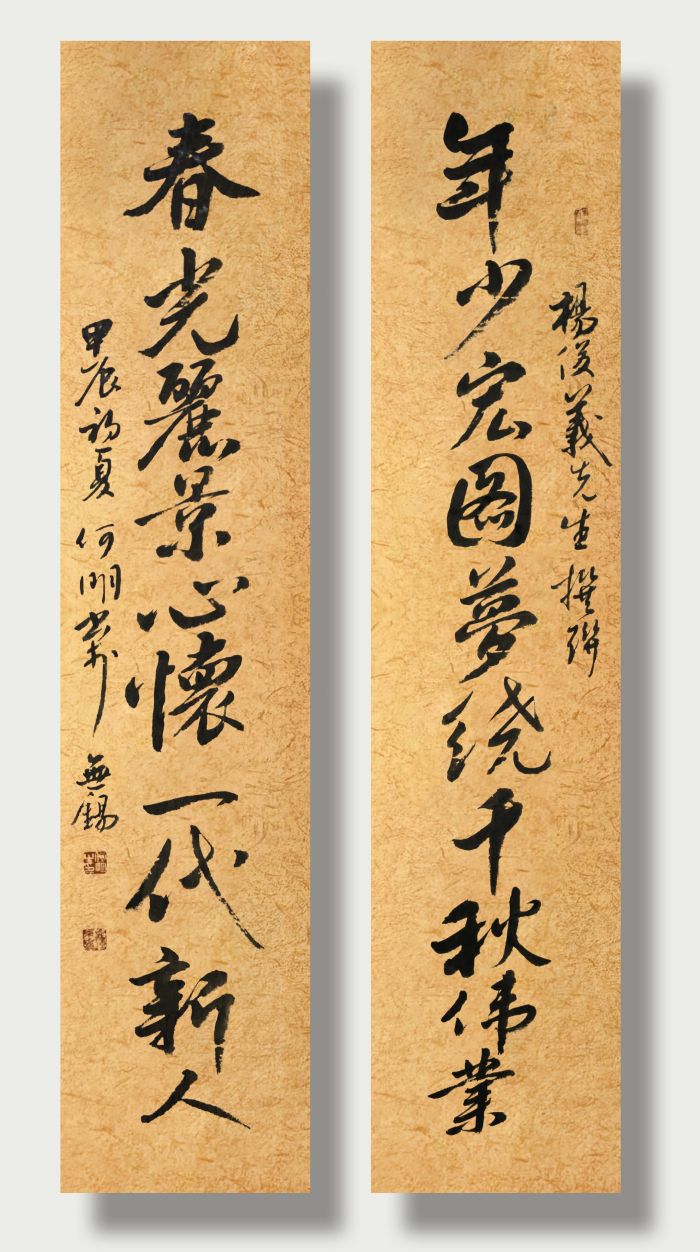 楊俊義先生撰聯
年少宏图夢绕千秋伟業
春光麗景心懷一代新人
甲辰初夏何明書於無錫